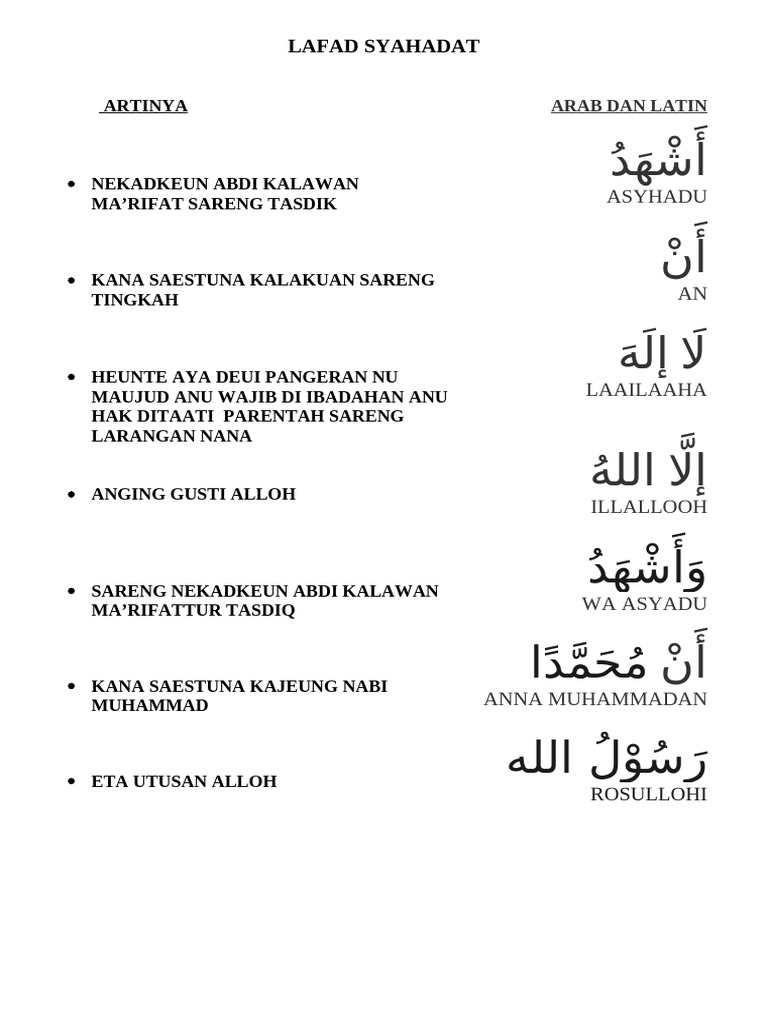 LAFAD SYAHADAT
ARTINYA
ARAB DAN LATIN
أَشْهَدُ
ASYHADU
• NEKADKEUN ABDI KALAWAN
MA’RIFAT SARENG TASDIK
أَنْ
AN
• KANA SAESTUNA KALAKUAN SARENG
TINGKAH
لَا إِلَهَ
LAAILAAHA
• HEUNTE AYA DEUI PANGERAN NU
MAUJUD ANU WAJIB DI IBADAHAN ANU
HAK DITAATI  PARENTAH SARENG
LARANGAN NANA
إِلَّا اللهُ
ILLALLOOH
• ANGING GUSTI ALLOH
وَأَشْهَدُ
WA ASYADU
• SARENG NEKADKEUN ABDI KALAWAN
MA’RIFATTUR TASDIQ
أَنْ مُحَمَّدًا
ANNA MUHAMMADAN
• KANA SAESTUNA KAJEUNG NABI
MUHAMMAD
رَسُوْلُ الله
ROSULLOHI
• ETA UTUSAN ALLOH